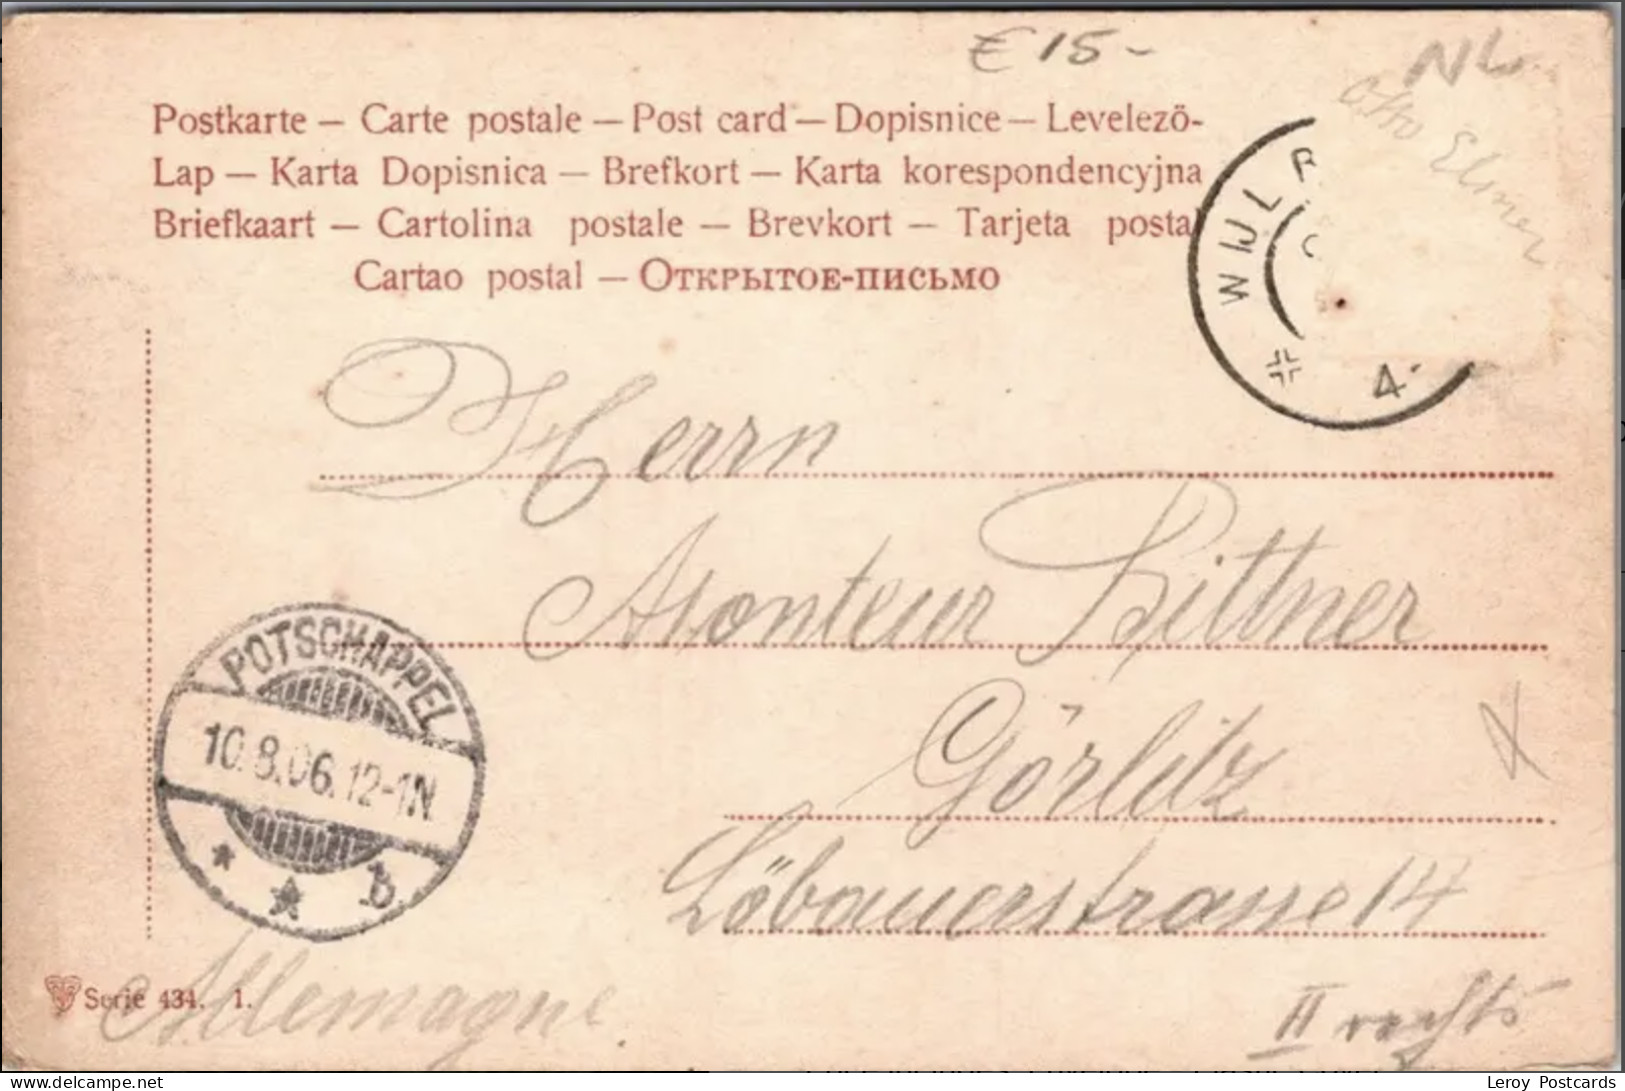 €15-
NL
Otto Elsner
Postkarte – Carte postale – Post card – Dopisnice – Levelező-
Lap – Karta Dopisnica – Brefkort – Karta korespondencyjna
Briefkaart – Cartolina postale – Brevkort – Tarjeta postal
Cartao postal – Открытое-письмо
WIJLR
4-
Herrn
Monteur Littner
POTSCHAPPEL
10.8.06.12-1N.
* * b.
Görlitz
Löbauerstrasse 14
II rechts
Serie 434. 1.
Allemagne
Leroy Postcards